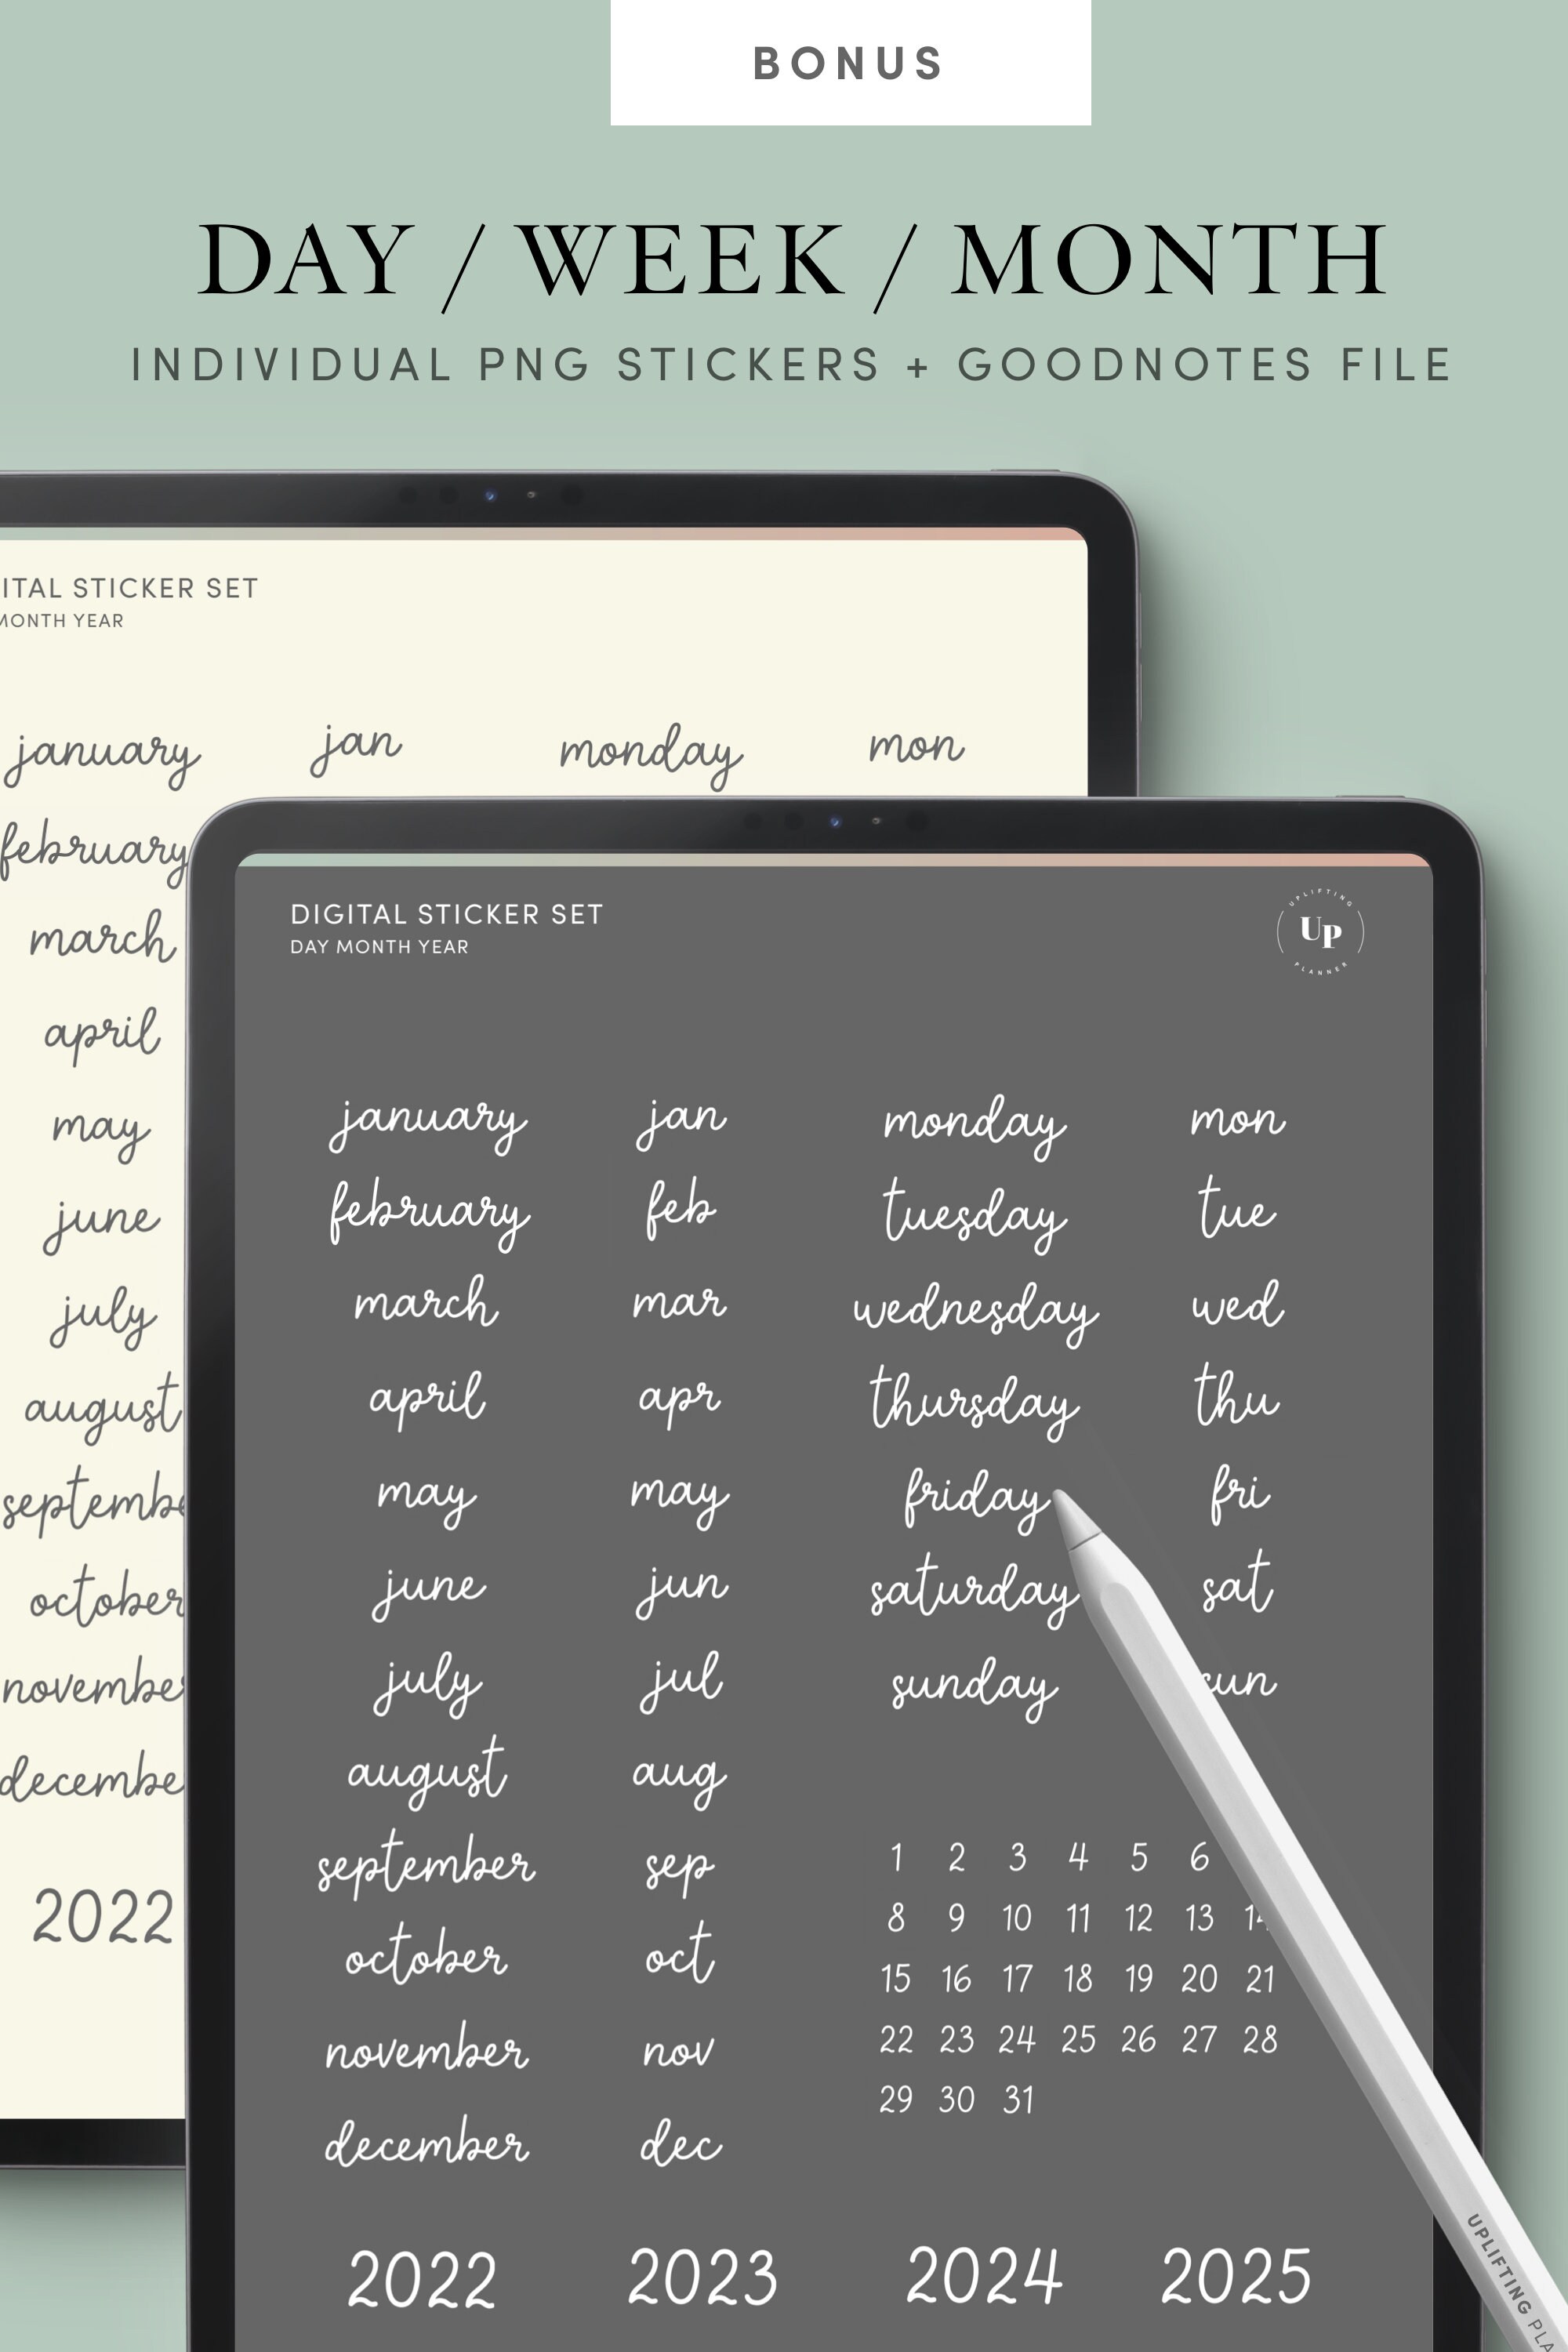 BONUS
DAY / WEEK / MONTH
INDIVIDUAL PNG STICKERS + GOODNOTES FILE
STICKER SET
MONTH YEAR
january jan monday mon
february
march
april
may
june
july
august
october
2022
DIGITAL STICKER SET
DAY MONTH YEAR
UPLIFTING
UP
PLANNER
january jan monday mon
february feb tuesday tue
march mar wednesday wed
april apr thursday thu
may may friday fri
june jun saturday sat
july jul sunday sun
august aug
september sep
october oct
november nov
december dec
1 2 3 4 5 6
8 9 10 11 12 13 14
15 16 17 18 19 20 21
22 23 24 25 26 27 28
29 30 31
2022 2023 2024 2025
UPLIFTING